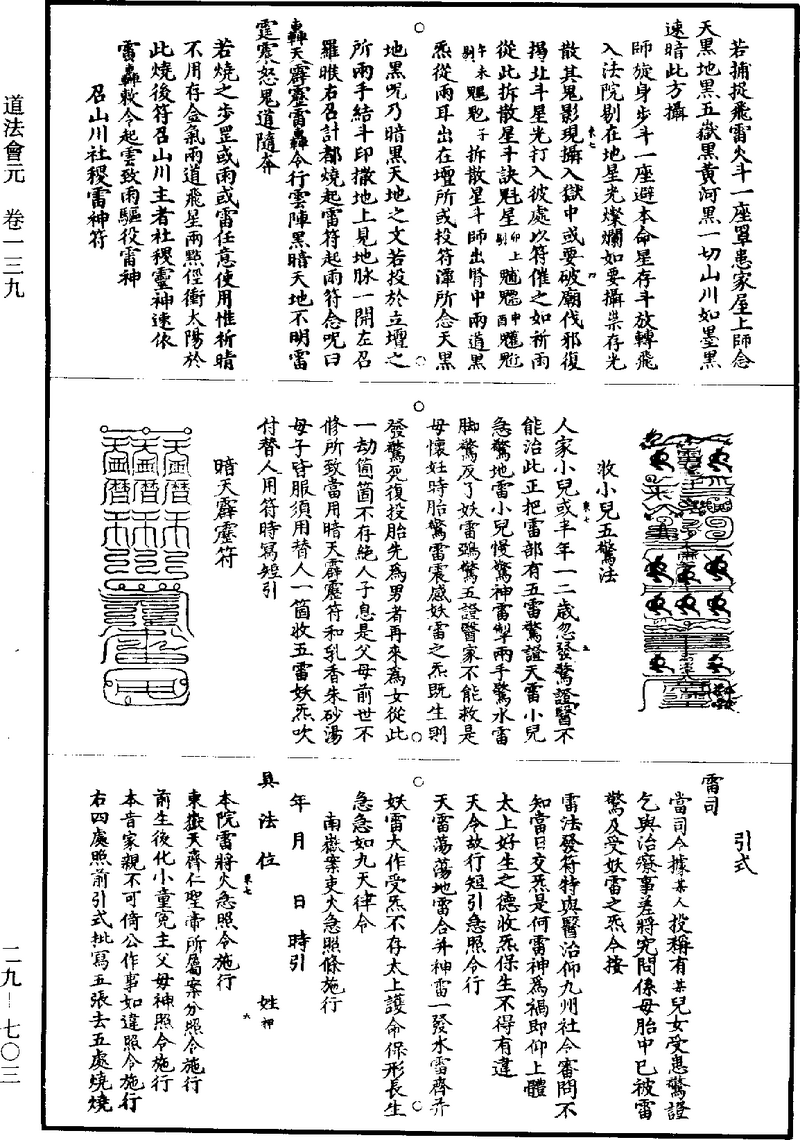 道法會元　卷一三九
二九—七〇三
若捕捉飛雷火斗一座罩患家屋上師念
天黑地黑五嶽黑黃河黑一切山川如墨黑
速暗此方攝
師旋身步斗一座避本命星存斗放轉飛
入法院剔在地星光燦爛如要攝祟存光
散其鬼影現攝入獄中或要破廟伐邪復
揭北斗星光打入彼處以符催之如祈雨
從此拆散星斗訣魁星
拆散星斗師出腎中兩道黑
炁從兩耳出在壇所或投符潭所念天黑
地黑呪乃暗黑天地之文若投於立壇之
所兩手結斗印撒地上見地脉一開左召
羅睺右召計都燒起雷符起雨符念呪曰
轟天霹靂雷轟令行雲陣黑暗天地不明雷
霆震怒鬼道隨奔
若燒之步罡或雨或雷任意使用惟祈晴
不用存金氣兩道飛星兩點徑衝太陽於
此燒後符召山川主者社稷靈神速依
雷轟敕令起雲致雨驅役雷神
召山川社稷雷神符
收小兒五驚法
人家小兒或半年一二歲忽發驚證醫不
能治此正把雷部有五雷驚證天雷小兒
急驚地雷小兒慢驚神雷掣兩手驚水雷
脚驚反了妖雷鵶驚五證醫家不能救是
母懷妊時胎驚雷震感妖雷之炁既生則
發驚死復投胎先為男者再來為女從此
一劫箇箇不存絕人子息是父母前世不
修所致當用暗天霹靂符和乳香朱砂湯
母子皆服須用替人一箇收五雷妖炁吹
付替人用符時寫短引
暗天霹靂符
引式
雷司
當司今據某人投稱有某兒女受患驚證
乞與治療事差將究問係母胎中已被雷
驚及受妖雷之炁今按
雷法發符特與醫治仰九州社令審問不
知當日交炁是何雷神為禍即仰上體
太上好生之德收炁保生不得有違
天令故行短引急照令行
天雷蕩蕩地雷合并神雷一發水雷齊并
妖雷大作受炁不存太上護命保形長生
急急如九天律令
南嶽案吏火急照條施行
年　月　日　時引
具法位　姓押
本院雷將火急照令施行
東嶽天齊仁聖帝所屬案分照令施行
前生後化小童冤主父母神照令施行
本音家親不可倚公作事如違照令施行
右四處照前引式批寫五張去五處燒燒